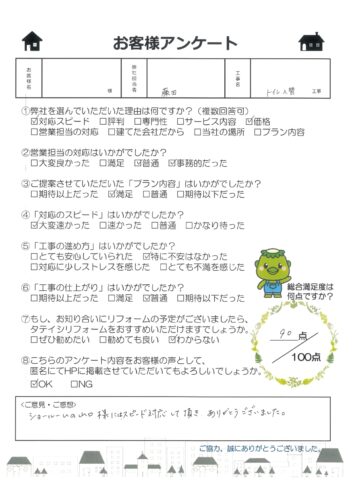 お客様アンケート
お客様名 様 弊社担当者 藤田 工事名 トイレ入替 工事
①弊社を選んでいただいた理由は何ですか？（複数回答可）
☑対応スピード □評判 □専門性 □サービス内容 ☑価格
□営業担当の対応 □建てた会社だから □当社の場所 □プラン内容
②営業担当の対応はいかがでしたか？
□大変良かった □満足 ☑普通 ☑事務的だった
③ご提案させていただいた「プラン内容」はいかがでしたか？
□期待以上だった ☑満足 □普通 □期待以下だった
④「対応のスピード」はいかがでしたか？
☑大変速かった □速かった □普通 □かなり待った
⑤「工事の進め方」はいかがでしたか？
□とても安心していられた ☑特に不安はなかった
□対応に少しストレスを感じた □とても不満を感じた
⑥「工事の仕上がり」はいかがでしたか？
□期待以上だった □満足 ☑普通 □期待以下だった
総合満足度は
何点ですか？
⑦もし、お知り合いにリフォームの予定がございましたら、
タテイシリフォームをおすすめいただけますでしょうか。
□ぜひ勧めたい □勧めても良い ☑わからない
90 点
100点
⑧こちらのアンケート内容をお客様の声として、
匿名にてHPに掲載させていただいてもよろしいでしょうか。
☑OK □NG
<ご意見・ご感想>
ショールームの山口様にはスピード対応して頂きありがとうございました。
ご協力、誠にありがとうございました。